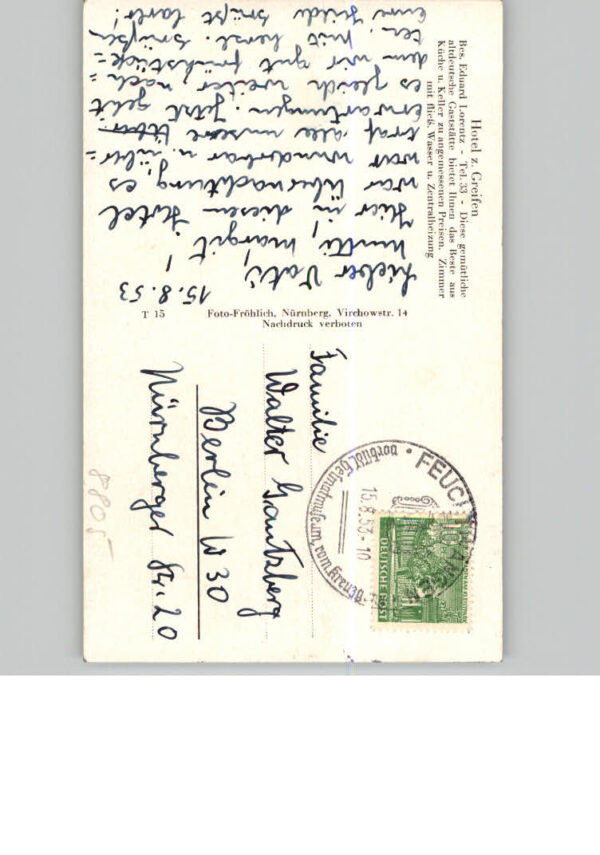 Hotel z. Greifen
Bes. Eduard Lorentz - Tel. 33 - Diese gemütliche
altdeutsche Gaststätte bietet Ihnen das Beste aus
Küche u. Keller zu angemessenen Preisen. Zimmer
mit fließ. Wasser u. Zentralheizung
15.8.53
Lieber Vati,
Mutti, Margit!
Hier in diesem Hotel
war Übernachtung, es
war wunderbar u. über=
traf alle unsere
erwartungen. Jetzt geht
es gleich weiter, nach=
dem wir gut frühstück=
ten. Mit herzl. Grüßen
eure
T 15
Foto-Fröhlich, Nürnberg, Virchowstr. 14
Nachdruck verboten
Familie
Walter Gantzberg
Berlin W 30
Nürnberger Str. 20
8805
FEUCHTWANGEN
15.8.53-10
vorbildl. Heimatmuseum, rom. Kreuzg.
DEUTSCHE POST